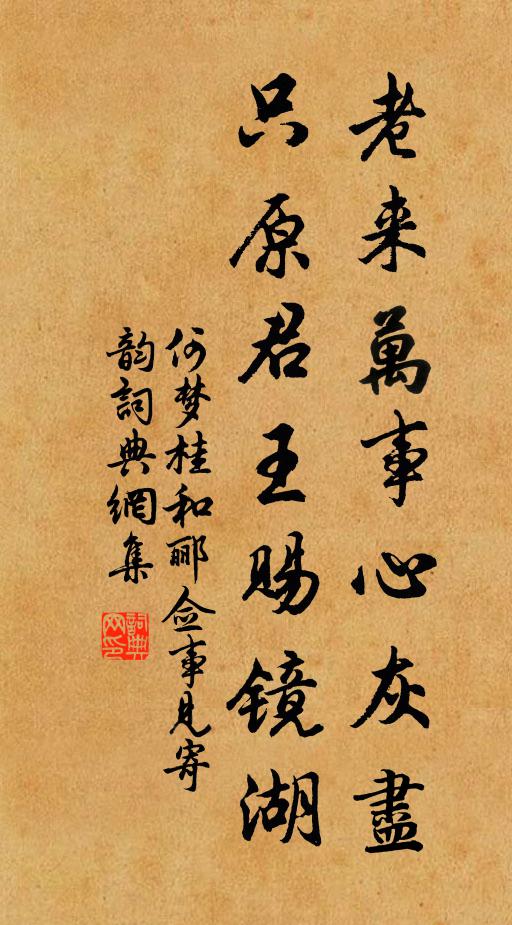 老来萬事心灰盡
只原君王賜镜湖
何梦桂和郦佥事見寄
韵詞典網集
詞典网印